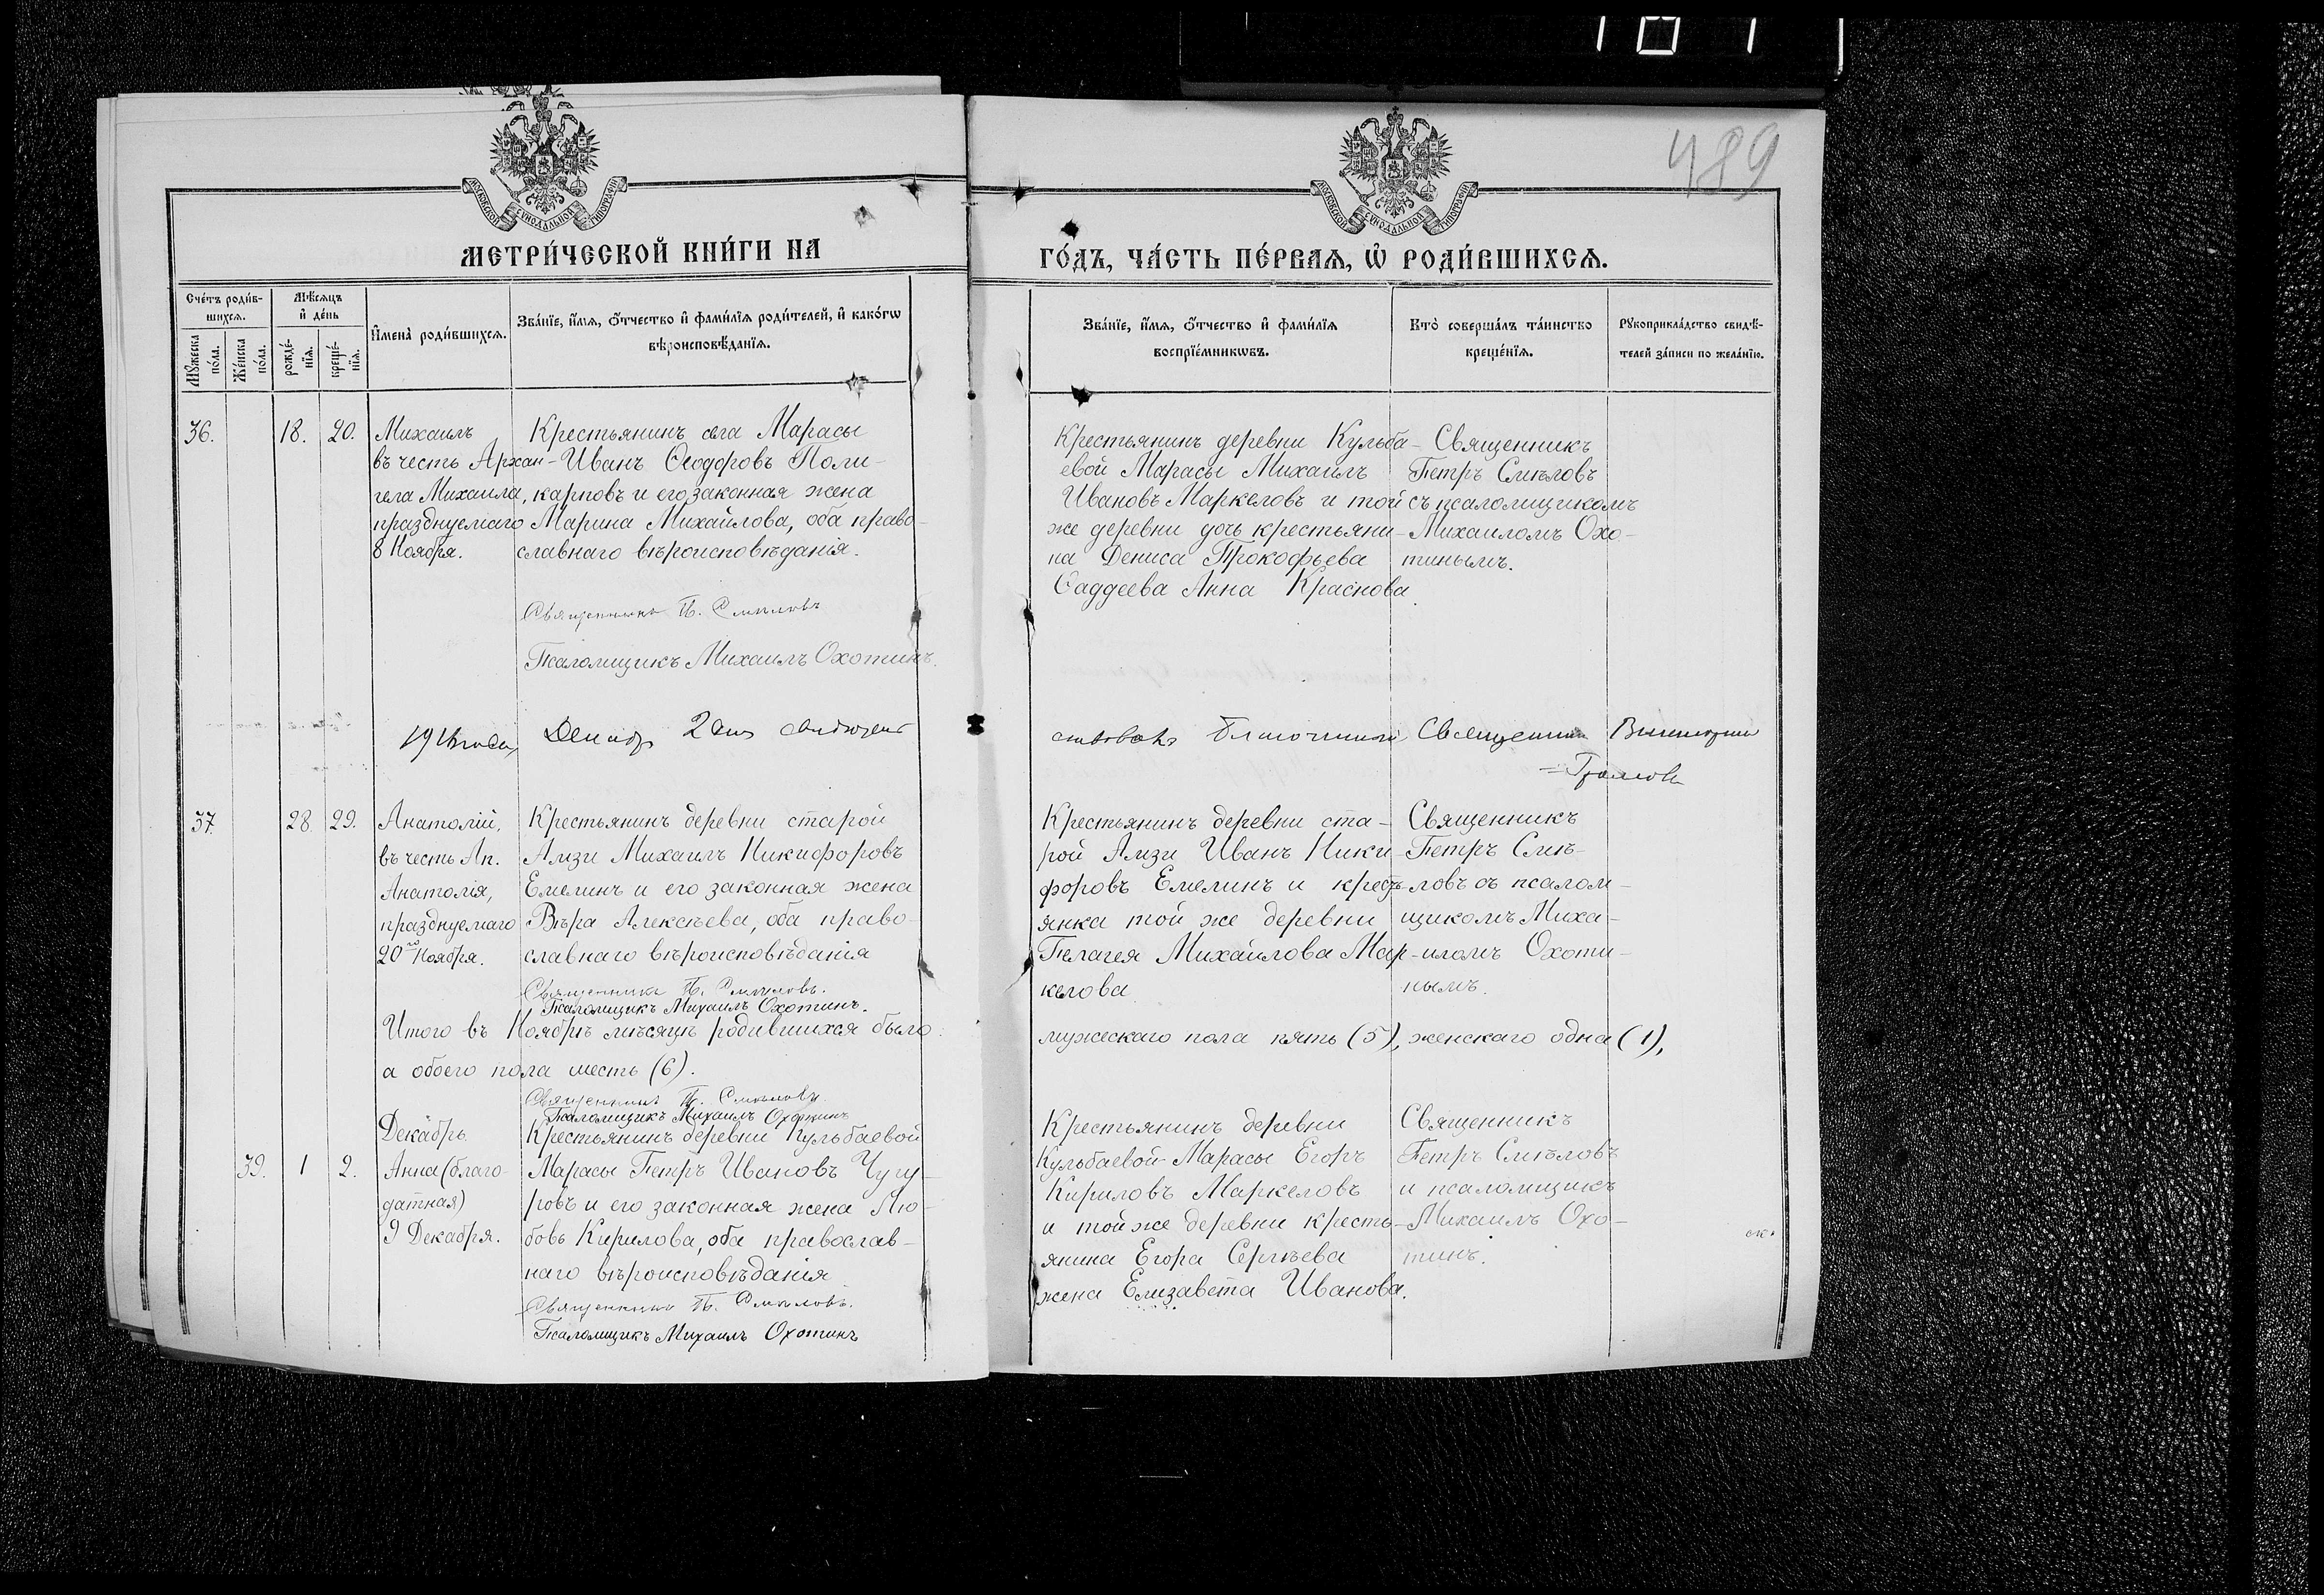 489
МОСКОВСКОЙ СѴНОДАЛЬНОЙ ТИПОГРАФІИ
МОСКОВСКОЙ СѴНОДАЛЬНОЙ ТИПОГРАФІИ
МЕТРИ́ЧЕСКОЙ КНИ́ГИ НА
ГО́ДЪ, ЧА́СТЬ ПЕ́РВАЯ, Ѡ҆ РОДИ́ВШИХСЯ.
Сче́тъ роди́в-
шихся.
Мѣ́сяцъ
и҆ де́нь
Мꙋ́жеска
по́ла.
Же́нска
по́ла.
рожде́-
нїя.
креще́-
нїя.
И҆мена̀ роди́вшихся.
Зва́нїе, и҆́мя, ѻ҆́тчество и҆ фами́лїя роди́телей, и҆ како́гѡ
вѣроисповѣ́данїя.
Зва́нїе, и҆́мя, ѻ҆́тчество и҆ фами́лїя
воспрїе́мникѡвъ.
Кто̀ соверша́лъ та́инство
креще́нїя.
Рꙋкоприкла́дство свидѣ́-
телей за́писи по жела́нїю.
36.
18.
20.
Михаилъ
въ честь Архан-
гела Михаила,
празднуемаго
8 Ноября.
Крестьянинъ села Марасы
Иванъ Ѳеодоровъ Поли-
карповъ и его законная жена
Марина Михайлова, оба право-
славнаго вѣроисповѣданія.
Священникъ П. Смѣловъ
Псаломщикъ Михаилъ Охотинъ.
Крестьянинъ деревни Кульба-
евой Марасы Михаилъ
Ивановъ Маркеловъ и той
же деревни дочь крестьяни-
на Дениса Прокофьева
Ѳаддеева Анна Краснова.
Священникъ
Петръ Смѣловъ
съ псаломщикомъ
Михаиломъ Охо-
тинымъ.
Декабр 2 дня свидетель
ствовалъ Благочинный Священник
37.
28.
29.
Анатолій,
въ честь Ап.
Анатолія,
празднуемаго
20го Ноября.
Крестьянинъ деревни старой
Амзи Михаилъ Никифоровъ
Емелинъ и его законная жена
Вѣра Алексѣева, оба право-
славнаго вѣроисповѣданія
Священникъ П. Смѣловъ.
Псаломщикъ Михаилъ Охотинъ.
Крестьянинъ деревни ста-
рой Амзи Иванъ Ники-
форовъ Емелинъ и кресть-
янка той же деревни
Пелагея Михайлова Мар-
келова
Священникъ
Петръ Смѣ-
ловъ съ псалом-
щикомъ Миха-
иломъ Охоти-
нымъ.
Итого въ Ноябрѣ мѣсяцѣ родившихся было:
мужескаго пола пять (5), женскаго одна (1),
а обоего пола шесть (6).
Священникъ П. Смѣловъ
Псаломщикъ Михаилъ Охотинъ
Декабрь
39.
1
2.
Анна (благо-
датная)
9 Декабря.
Крестьянинъ деревни Кульбаевой
Марасы Петръ Ивановъ Чугу-
ровъ и его законная жена Лю-
бовь Кирилова, оба православ-
наго вѣроисповѣданія
Священникъ П. Смѣловъ.
Псаломщикъ Михаилъ Охотинъ
Крестьянинъ деревни
Кульбаевой Марасы Егоръ
Кириловъ Маркеловъ
и той же деревни кресть-
янина Егора Сергѣева
жена Елизавета Иванова.
Священникъ
Петръ Смѣловъ
и псаломщикъ
Михаилъ Охо-
тинъ.